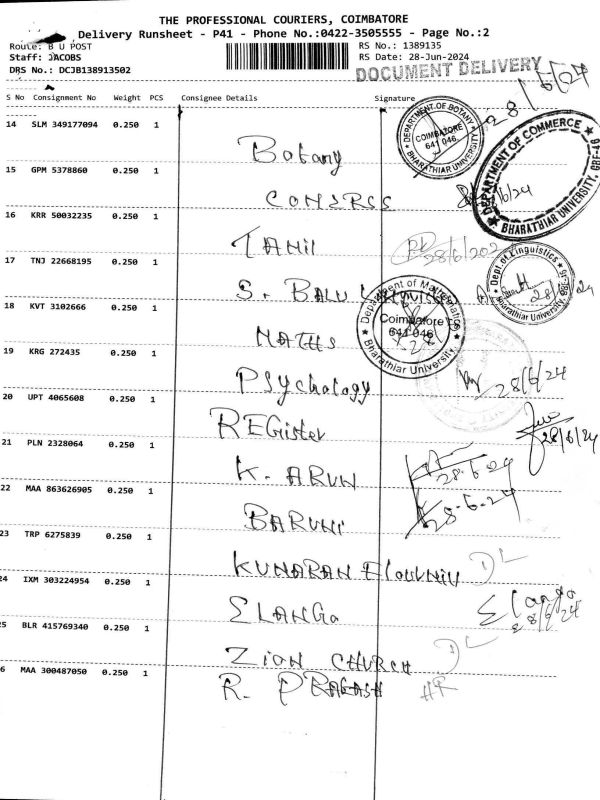 THE PROFESSIONAL COURIERS, COIMBATORE
Delivery Runsheet - P41 - Phone No.:0422-3505555 - Page No.:2
Route: B U POST
RS No.: 1389135
Staff: JACOBS
RS Date: 28-Jun-2024
DRS No.: DCJB138913502
DOCUMENT DELIVERY
28/6/24
S No Consignment No Weight PCS Consignee Details Signature
14 SLM 349177094 0.250 1
Botany
DEPARTMENT OF BOTANY COIMBATORE 641 046. BHARATHIAR UNIVERSITY
DEPARTMENT OF COMMERCE BHARATHIAR UNIVERSITY, CBE-46
15 GPM 5378860 0.250 1
16 KRR 50032235 0.250 1
TAMil
28/6/202
17 TNJ 22668195 0.250 1
S. BALU
Dept. of Linguistics Bharathiar University, CBE-46
28/6/24
18 KVT 3102666 0.250 1
MATHS
Department of Mathematics Coimbatore 641 046 Bharathiar University
19 KRG 272435 0.250 1
PSychology
28/6/24
20 UPT 4065608 0.250 1
REGister
28/6/24
21 PLN 2328064 0.250 1
K. ARUN
28.6.24
22 MAA 863626905 0.250 1
BARUNi
28-6-24
23 TRP 6275839 0.250 1
KUMARAN
DL
24 IXM 303224954 0.250 1
ELANGo
Elango
28/6/24
25 BLR 415769340 0.250 1
ZION CHURCH
DL
6 MAA 300487050 0.250 1
R. PRAGASH